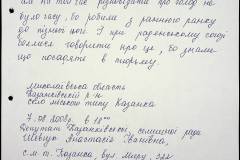 на той час розповідати про голод не
було часу, бо робили з раннього ранку
до пізньої ночі. І при радянському союзі
боялися говорити про це, бо знали
що посадять в тюрьму.
Миколаївська область
Казанківський р-н
село міського типу Казанка
7.08.2008г. в 18⁰⁰
Депутат Казанківської селищної ради
Шевчук Анастасія Іванівна,
с.м.т. Казанка, вул. Миру,